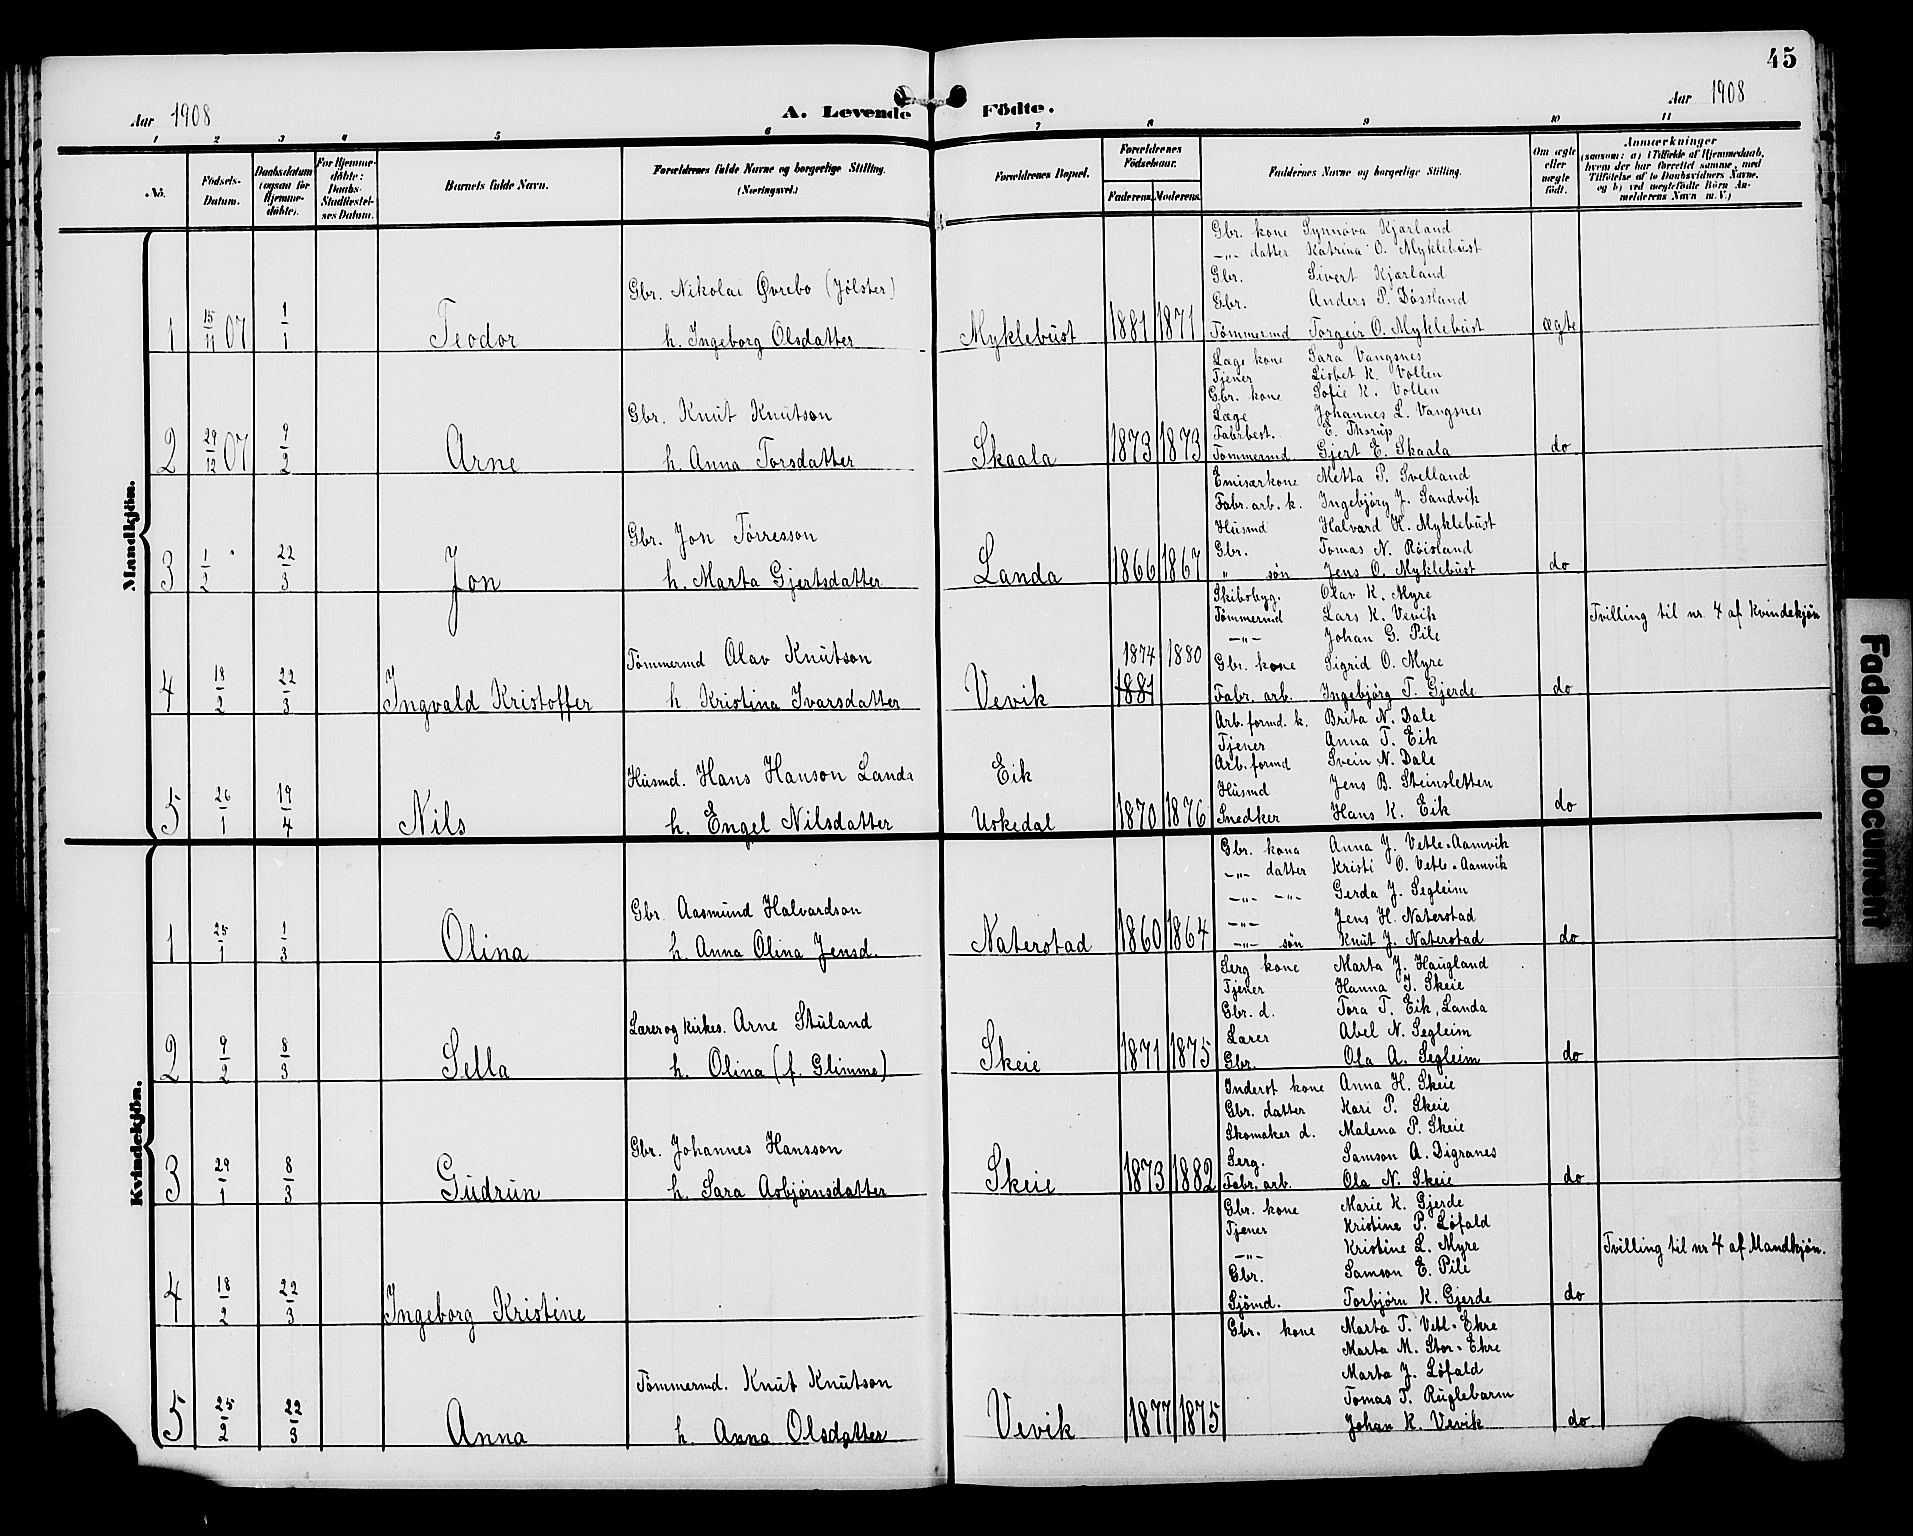 45
Aar 1908
A. Levende Födte.
Aar 1908
1 2 3 4 5 6 7 8 9 10 11
No.
Födsels-Datum.
Daabsdatum (ogsaa for Hjemme-döbte).
For Hjemme-döbte: Daabs-Stadfæstel-ses Datum.
Barnets fulde Navn.
Forældrenes fulde Navne og borgerlige Stilling. (Næringsvei.)
Forældrenes Bopæl.
Forældrenes Födselsaar.
Faderens. Moderens.
Faddernes Navne og borgerlige Stilling.
Om ægte eller uægte födt.
Anmærkninger
(saasom: a) i Tilfælde af Hjemmedaab, hvem der har forrettet samme, med Tilföielse af to Daabsvidners Navne, og b) ved uægtefödte Börn Anmelderens Navn m. V.)
Mandkjön.
1 15/11 07 1/1 Teodor
Gbr. Nikolai Øvrebo (Jölster)
h. Ingeborg Olsdatter
Myklebust 1881 1871
Gbr. kone Synnøva Kjærland
-"- datter Katrina O. Myklebust
Gbr. Sivert Kjærland
Gbr. Anders P. Døssland
Tømmermd Torgeir O. Myklebust
ægte
2 29/12 07 9/2 Arne
Gbr. Knut Knutson
h. Anna Torsdatter
Skaala 1873 1873
Læge kone Sara Vangsnes
Tjener Lisbet K. Vollen
Gbr. kone Sofie K. Vollen
Læge Johannes L. Vangsnes
Fabrbest. E. Thorup
Tømmermd Gjert E. Skaala
do
3 1/2 22/3 Jon
Gbr. Jon Tørresson
h. Marta Gjertsdatter
Landa 1866 1867
Emisærkone Metta P. Svelland
Fabr. arb. k. Ingebjörg J. Sandvik
Husmd Halvard H. Myklebust
Gbr. Tomas N. Röisland
" søn Jens O. Myklebust
do
4 18/2 22/3 Ingvald Kristoffer
Tömmermd Olav Knutson
h. Kristina Ivarsdatter
Vevik 1874 1880
1881
Skibsbyg. Olav K. Myre
Tömmermd Lars K. Vevik
-"- Johan G. Pile
Gbr. kone Sigrid O. Myre
Fabr. arb. Ingebjörg T. Gjerde
do
Tvilling til nr. 4 af Kvindekjøn
5 26/1 19/4 Nils
Husmd. Hans Hanson Landa
h. Engel Nilsdatter
Eik
Uskedal 1870 1876
Arb. formd. k. Brita N. Dale
Tjener Anna T. Eik
Arb. formd Svein N. Dale
Husmd Jens B. Steinsletten
Snedker Hans K. Eik
do
Kvindekjön.
1 25/1 1/3 Olina
Gbr. Aasmund Halvardson
h. Anna Olina Jensd.
Naterstad 1860 1864
Gbr. kona Anna J. Vetle-Aamvik
-"- datter Kristi O. Vetle-Aamvik
-"- -"- Gerda J. Segleim
-"- Jens H. Naterstad
-"- søn Knut J. Naterstad
do
2 9/2 8/3 Sella
Lærer og kirkes. Arne Stuland
h. Olina (f. Glimme)
Skeie 1871 1875
Serg kone Marta J. Haugland
Tjener Hanna J. Skeie
Gbr. d. Tora T. Eik, Landa
Lærer Abel N. Segleim
Gbr. Ola A. Segleim
do
3 29/1 8/3 Gudrun
Gbr. Johannes Hansson
h. Sara Asbjørnsdatter
Skeie 1873 1882
Inderst kone Anna H. Skeie
Gbr. datter Kari P. Skeie
Skomaker d. Malena P. Skeie
Serg. Samson A. Digranes
Fabr. arb. Ola N. Skeie
do
4 18/2 22/3 Ingeborg Kristine
Gbr. kone Marie K. Gjerde
Tjener Kristine P. Löfald
-"- Kristine L. Myre
Gbr. Samson E. Pile
Sjömd. Torbjörn K. Gjerde
do
Tvilling til nr 4 af Mandkjøn.
5 25/2 22/3 Anna
Tömmermd. Knut Knutson
h. Anna Olsdatter
Vevik 1877 1875
Gbr. kone Marta T. Vetl-Ekre
Marta M. Stor-Ekre
Marta J. Löfald
Tomas T. Ruglebarm
Johan K. Vevik
do
Faded Document